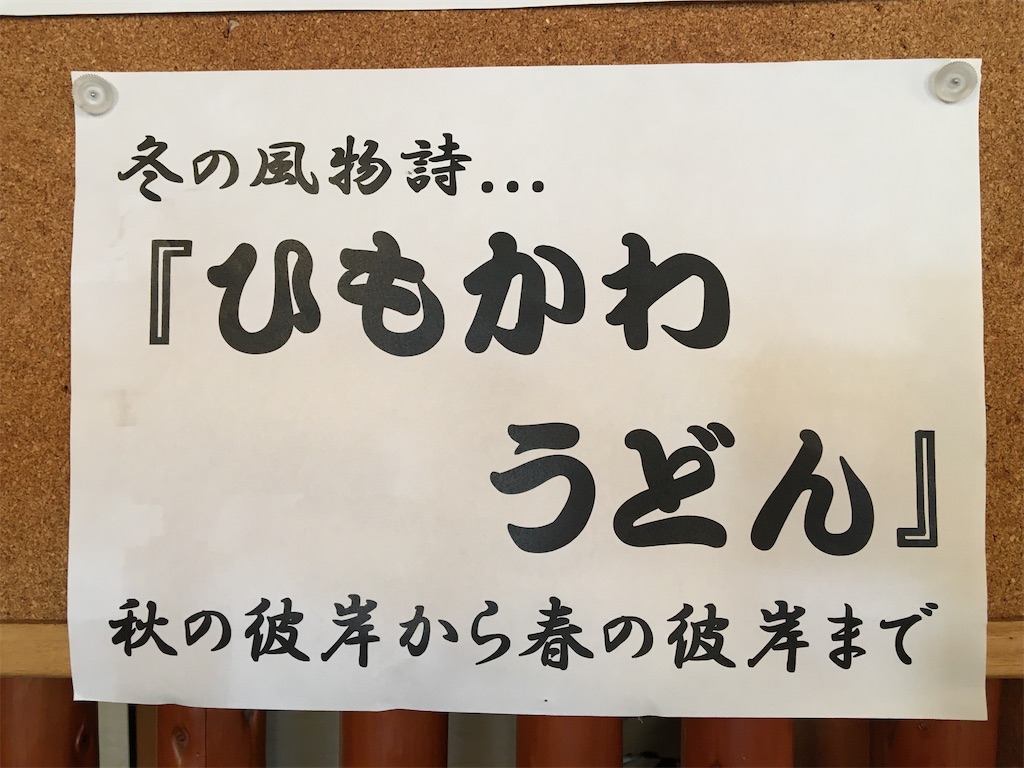 冬の風物詩...
『ひもかわ
うどん』
秋の彼岸から春の彼岸まで